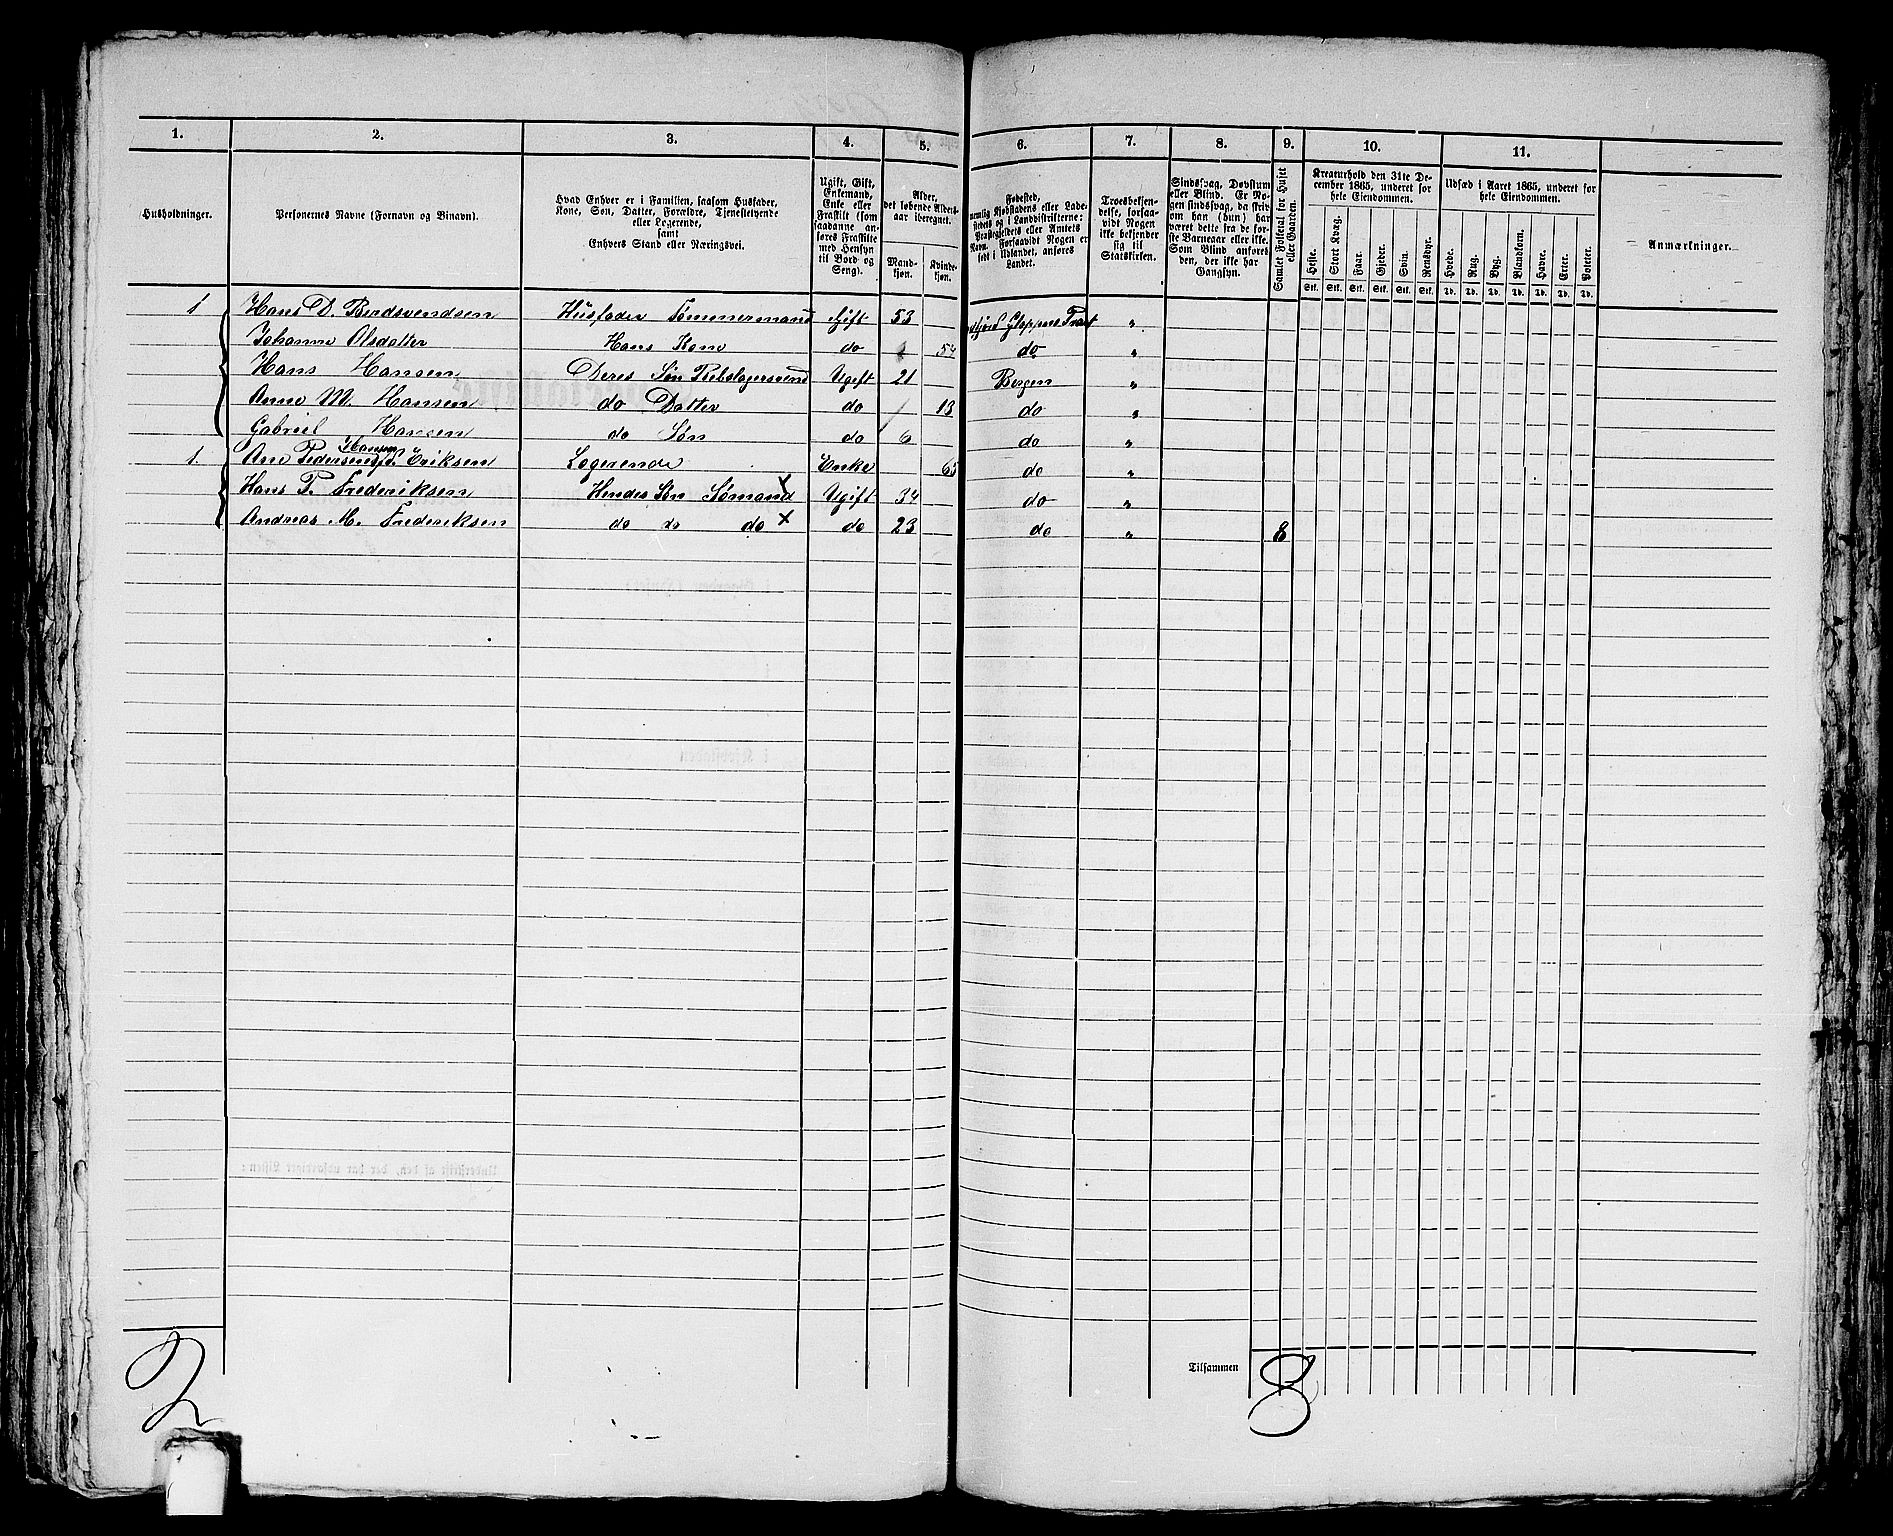 1. 2. 3. 4. 5. 6. 7. 8. 9. 10. 11.
Husholdninger.
Personernes Navne (Fornavn og Binavn).
Hvad Enhver er i Familien, saasom Husfader,
Kone, Søn, Datter, Forældre, Tjenestetyende
eller Logerende,
samt
Enhvers Stand eller Næringsvei.
Ugift, Gift,
Enkemand,
Enke eller
Fraskilt (som
saadanne an-
føres Fraskilte
med Hensyn
til Bord og
Seng).
Alder,
det løbende Alders-
aar iberegnet.
Mand-
kjøn.
Kvinde-
kjøn.
Fødested,
nemlig Kjøbstadens eller Lade-
stedets og i Landdistrikterne:
Præstegjeldets eller Amtets
Navn. Forsaavidt Nogen er
født i Udlandet, anføres
Landet.
Troesbekjen-
delse, forsaa-
vidt Nogen
ikke bekjender
sig til
Statskirken.
Sindssvag, Døvstum
eller Blind. Er No-
gen sindssvag, da skriv
om han (hun) har
været dette fra de før-
ste Barneaar eller ikke.
Som Blind anføres
den, der ikke har
Gangsyn.
Samlet Folketal for Huset
eller Gaarden.
Kreaturhold den 31te De-
cember 1865, underet for
hele Eiendommen.
Heste. Stort Kvæg. Faar. Gjeder. Svin. Rensdyr.
Stk. Stk. Stk. Stk. Stk. Stk.
Udsæd i Aaret 1865, underet for
hele Eiendommen.
Hvede. Rug. Byg. Blandkorn. Havre. Erter. Poteter.
Td. Td. Td. Td. Td. Td. Td.
Anmærkninger.
1 Hans D. Berdsvendsen Husfader Tømmermand Gift 53 "
Johanne Olsdatter Hans Kone do 54 do "
Hans Hansen Deres Søn Rebslagersvend Ugift 21 Bergen "
Anne M. Hansen do Datter do 13 do "
Gabriel Hansen do Søn do 6 do "
Hansen
1. Ane Pedersen Eriksen Logerende Enke 65 do "
Hans P. Frederiksen Hendes Søn Sømand X Ugift 34 do "
Andreas M. Frederiksen do do do X do 23 do " 8
Tilsammen
2 8